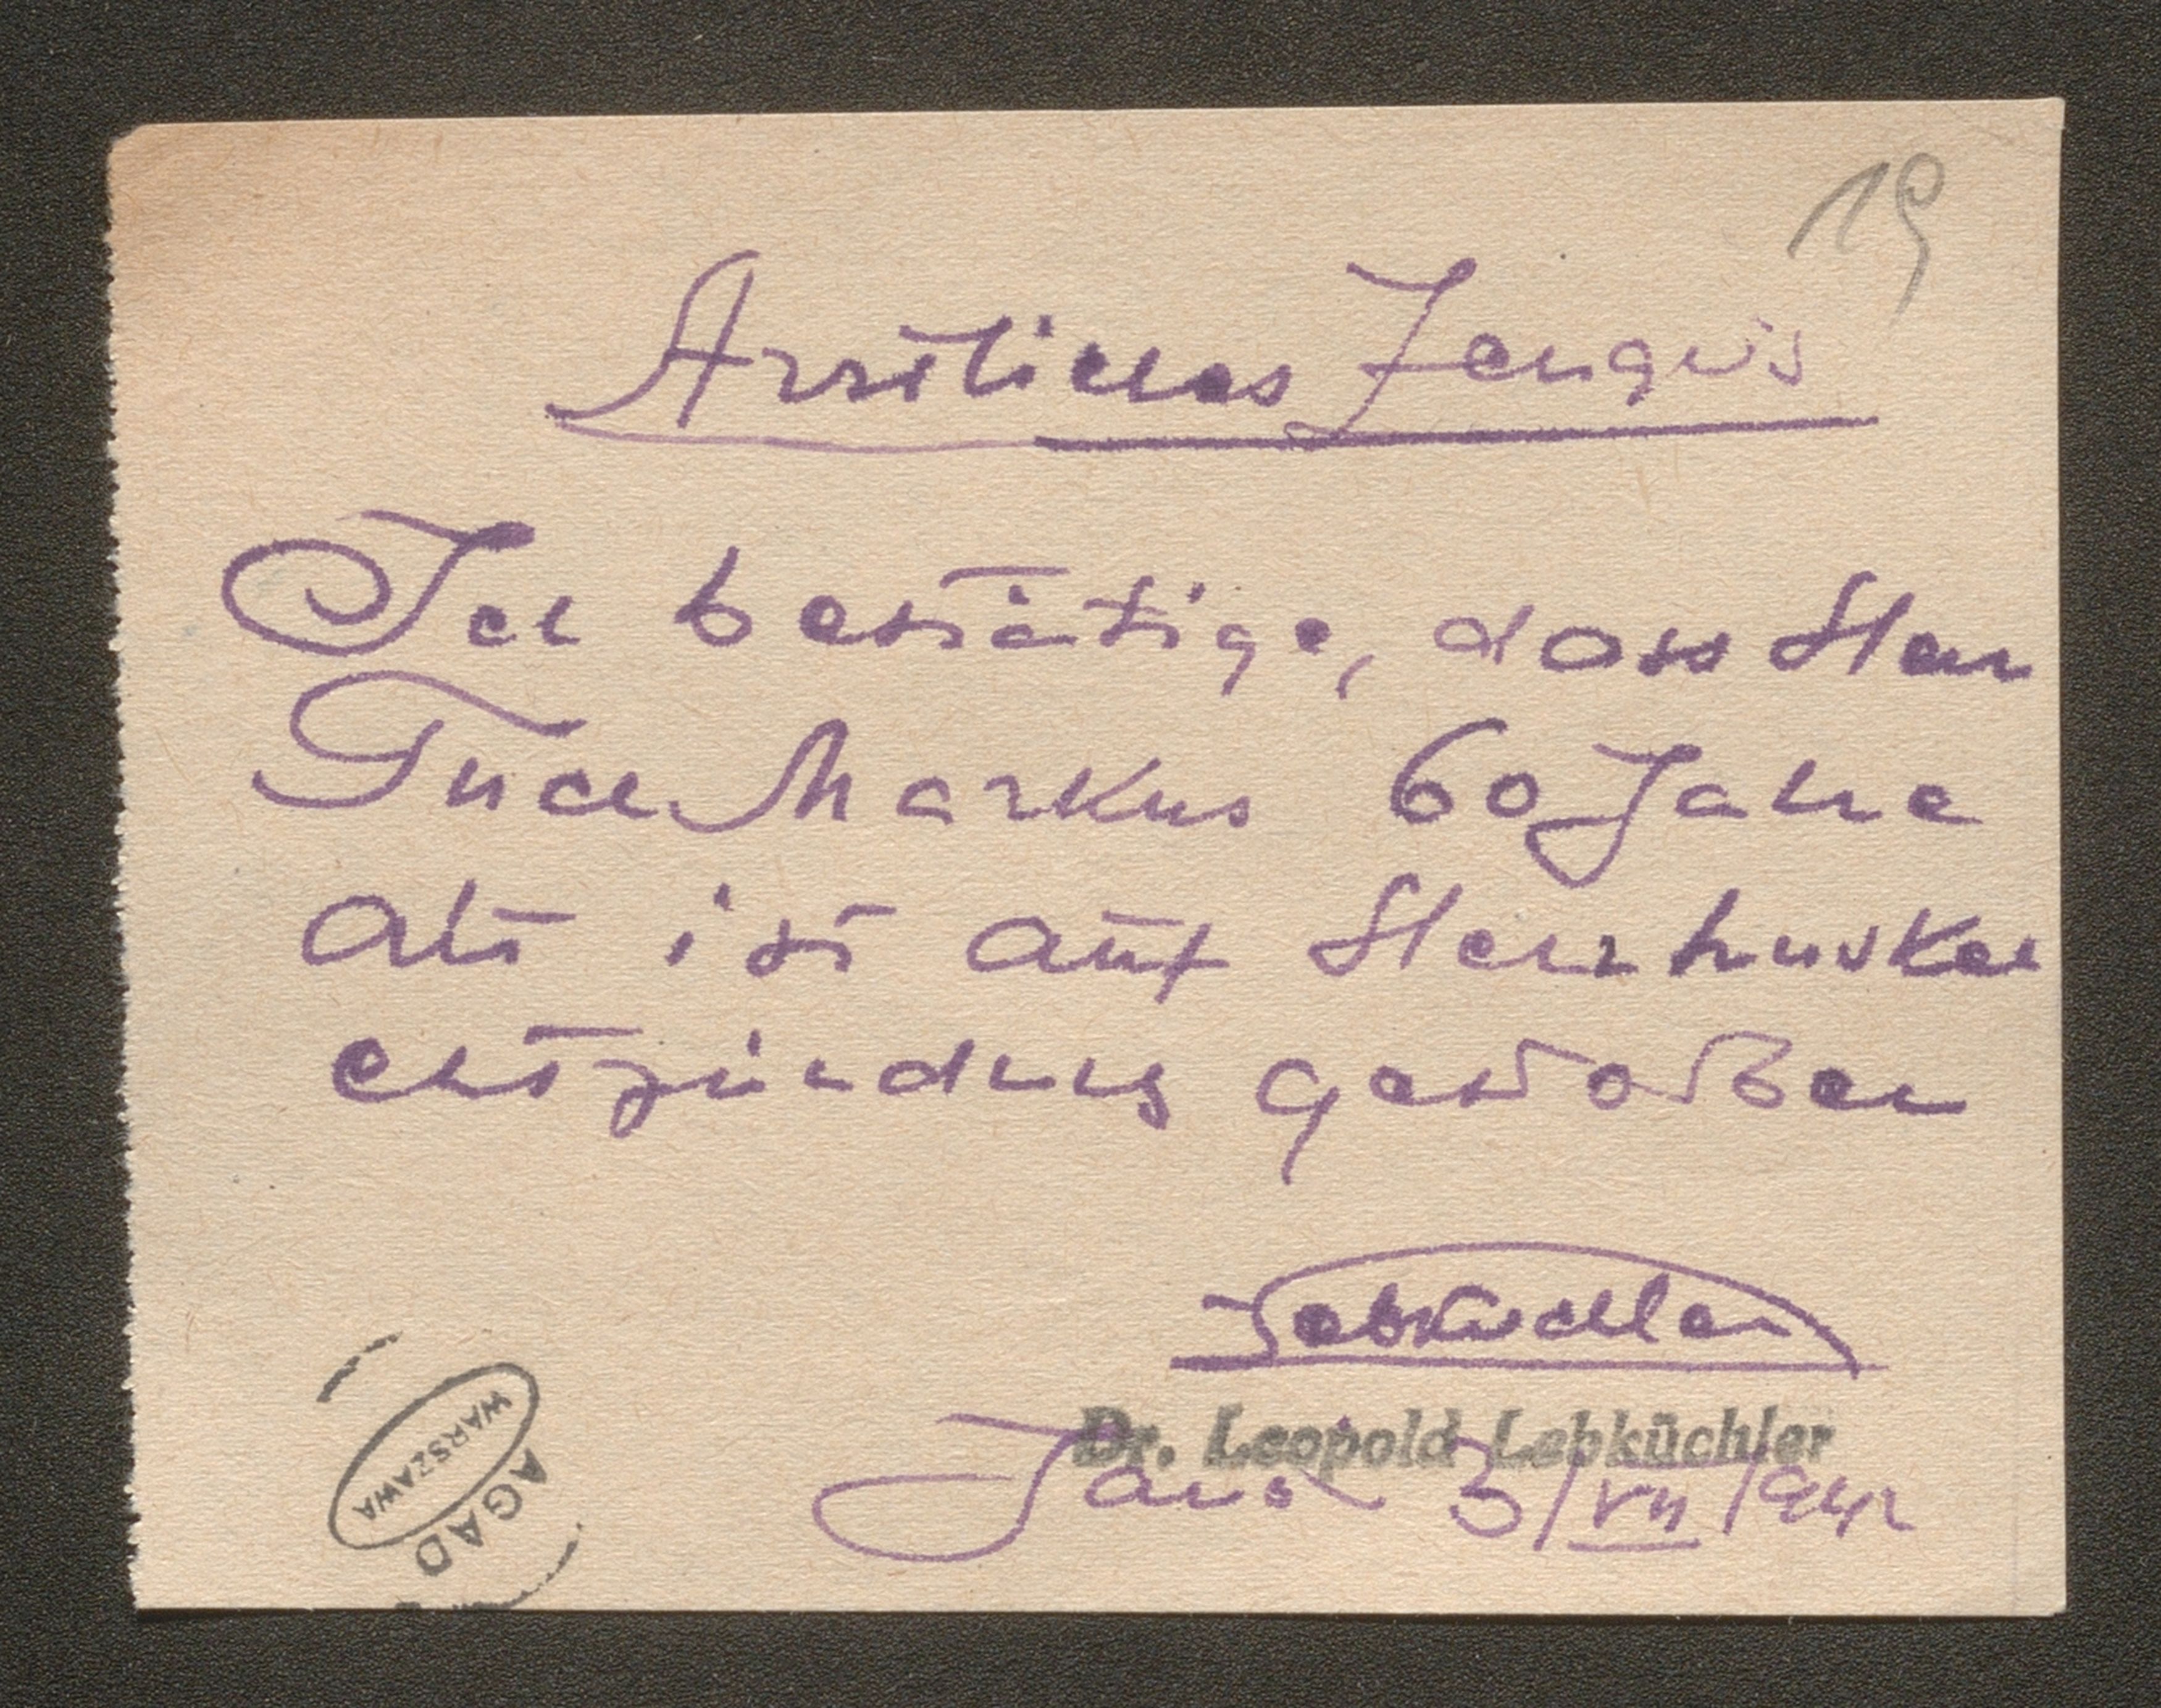 19
Arztliches Zeugnis
Ich bestätige, dass Herr
Tuch Markus 60 Jahre
alt ist auf Herzmuskel
entzündung gestorben
Lebküchler
Dr. Leopold Lebküchler
3/VII 1942
WARSZAWA
AGAD